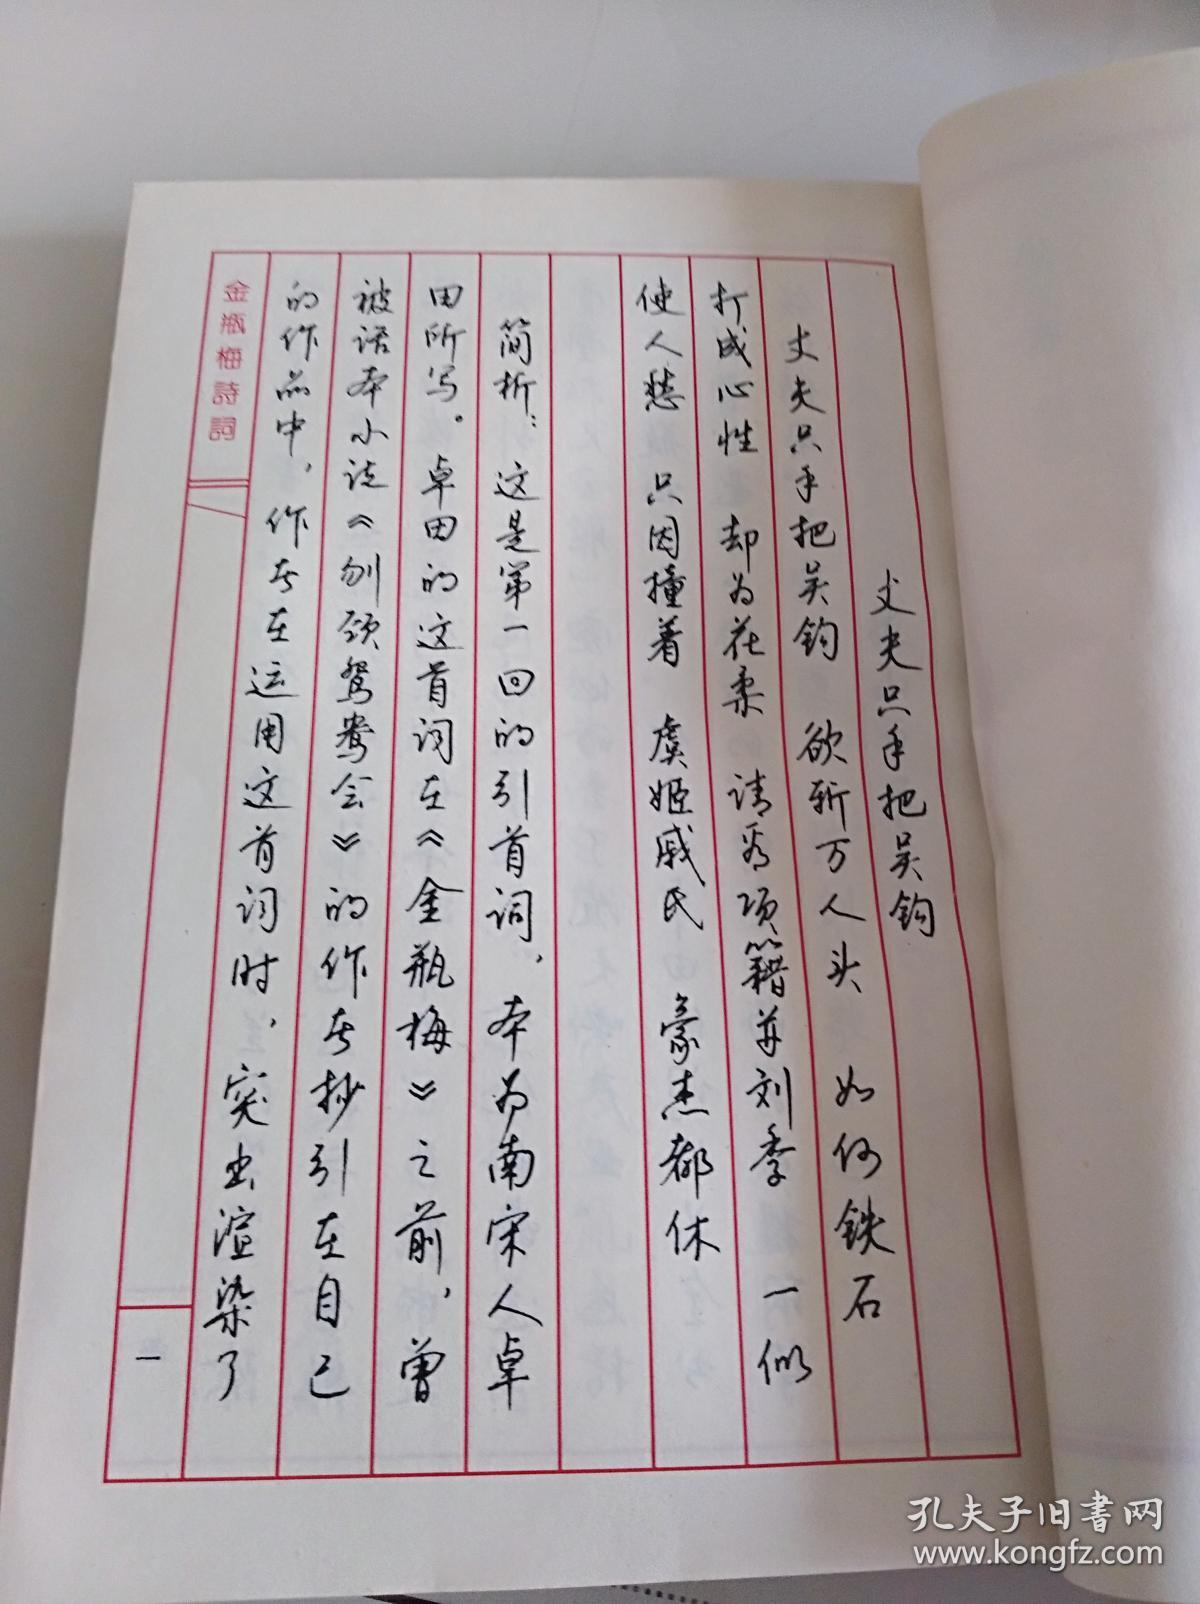 丈夫只手把吴钩
丈夫只手把吴钩 欲斩万人头 如何铁石
打成心性 却为花柔 请看项籍并刘季 一似
使人愁 只因撞着 虞姬戚氏 豪杰都休
简析：这是第一回的引首词，本为南宋人卓
田所写。卓田的这首词在《金瓶梅》之前，曾
被话本小说《刎颈鸳鸯会》的作者抄引在自己
的作品中，作者在运用这首词时，突出渲染了
金瓶梅詩詞
一
孔夫子旧书网
www.kongfz.com